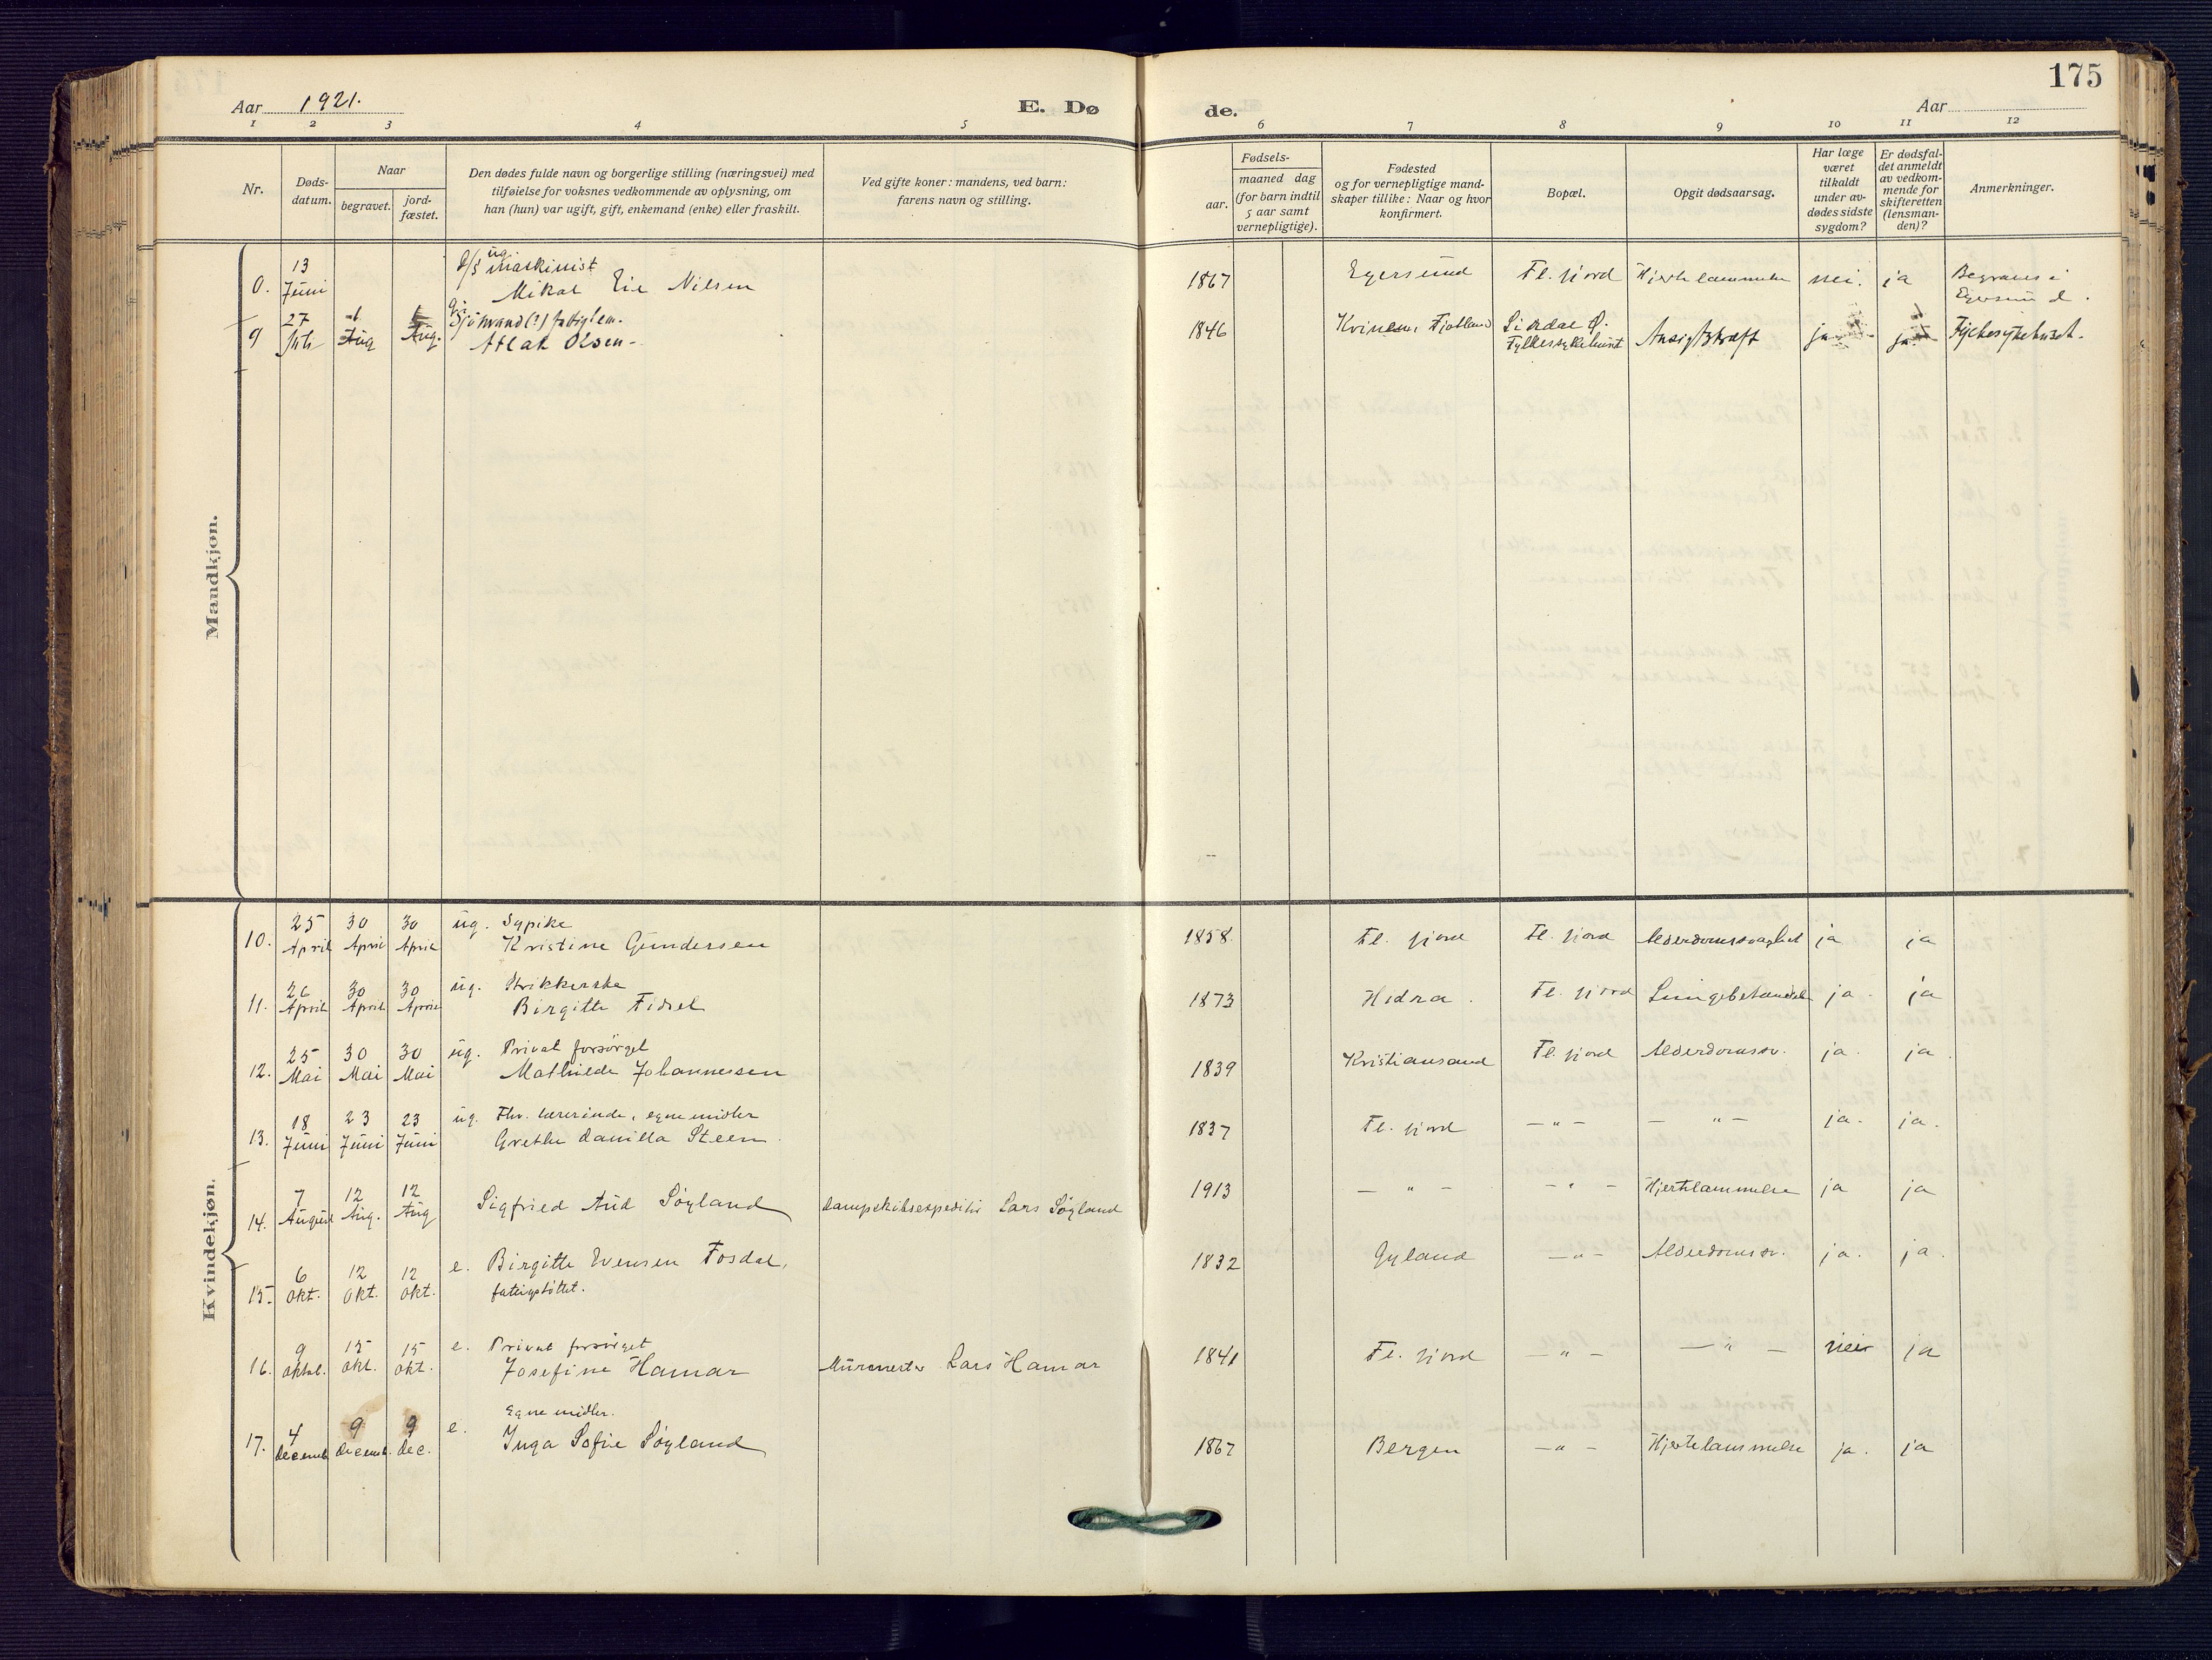 175
Aar 1921.
E. Dø de.
Aar
1 2 3 4 5 6 7 8 9 10 11 12
Nr.
Døds-
datum.
Naar
begravet.
jord-
fæstet.
Den dødes fulde navn og borgerlige stilling (næringsvei) med
tilføielse for voksnes vedkommende av oplysning, om
han (hun) var ugift, gift, enkemand (enke) eller fraskilt.
Ved gifte koner: mandens, ved barn:
farens navn og stilling.
Fødsels-
aar.
maaned dag
(for barn indtil
5 aar samt
vernepligtige).
Fødested
og for vernepligtige mand-
skaper tillike: Naar og hvor
konfirmert.
Bopæl.
Opgit dødsaarsag.
Har læge
været
tilkaldt
under av-
dødes sidste
sygdom?
Er dødsfal-
det anmeldt
av vedkom-
mende for
skifteretten
(lensman-
den)?
Anmerkninger.
Mandkjøn.
0. 13 Juni ug. D/S maskinist
Mikal Eie Nilsen 1867 Egersund Fl. fjord Hjertelammelse nei. ja Begraves i
Egersund.
9 27 Juli 1 Aug 1 Aug. Sjømand (?) fattiglem.
Atlak Olsen 1846 Fjotland Sirdal
Fylkessykehuset Ansigtskræft ja ja Fylkesykehuset.
Kvindekjøn.
10. 25 April 30 April 30 April ug. Sypike
Kristine Gundersen 1858. Fl. fjord Fl. fjord Alderdomssvaghet ja ja
11. 26 April 30 April 30 April ug. Strikkerske
Birgitte Fidsel 1873 Hidra. Fl. fjord Lungebetændelse ja. ja
12. 25 Mai 30 Mai 30 Mai ug. Privat forsörget
Mathilde Johannessen 1839 Kristiansand Fl. fjord Alderdomssv. ja. ja.
13. 18 Juni 23 Juni 23 Juni ug. Fhv. lærerinde, egne midler
Grethe Danilla Steen 1837 Fl. fjord — " — — " — ja. ja.
14. 7 August 12 Aug. 12 Aug Sigfried Aud Söyland Dampskibsexpeditör Lars Söyland 1913 — " — — " — Hjertelammelse ja ja
15. 6 Okt. 12 Okt. 12 Okt. e. Birgitte Evensen Fosdal,
fattigstöttet. 1832 Gyland — " — Alderdomssv. ja. ja.
16. 9 Oktob. 15 Okt. 15 Okt. e. Privat forsörget
Josefine Hamar Murmester Lars Hamar 1841 Fl. fjord — " — — " — nei ja
17. 4 Decemb 9 Decemb. 9 Dec. e. Egne midler.
Inga Sofie Söyland 1867 Bergen — " — Hjertelammelse ja. ja